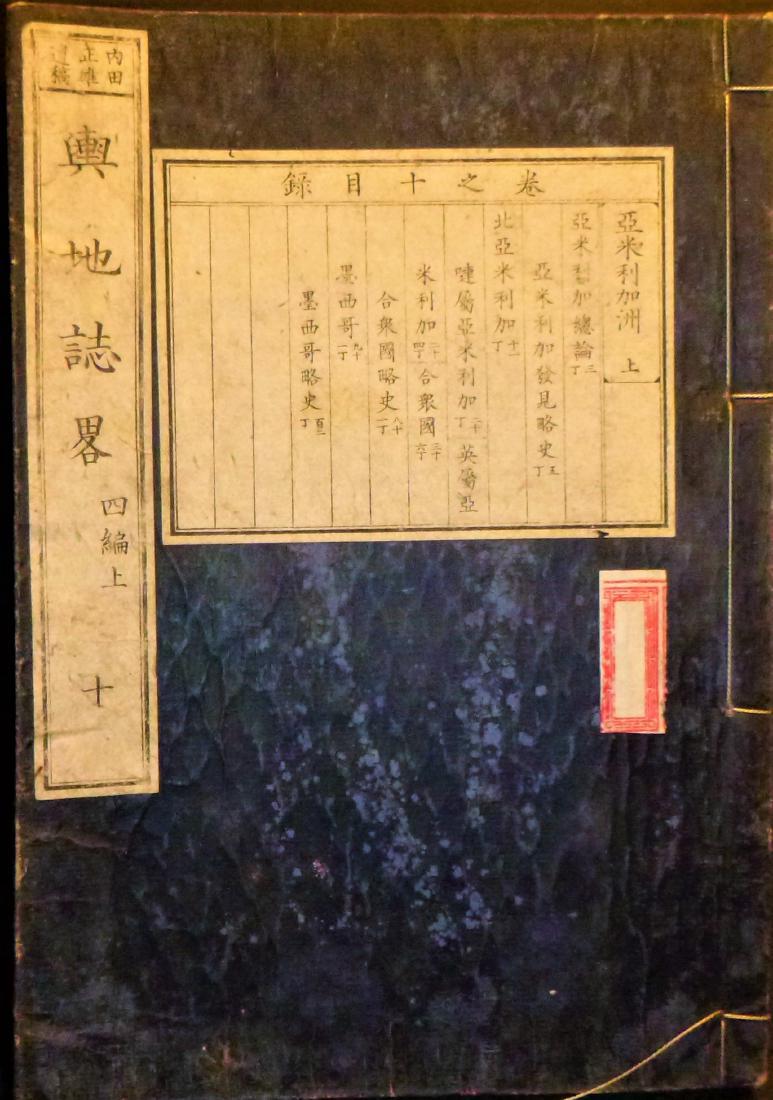 卷之十目錄
亞米利加洲 上
亞米利加總論 三丁
亞米利加發見略史 五丁
北亞米利加 十一丁
嗹屬亞米利加 二十丁 英屬亞
米利加 二十四丁 合衆國 三十六丁
合衆國略史 八十一丁
墨西哥 九十一丁
墨西哥略史 百三丁
內田
正雄
輿地誌畧 四編上 十